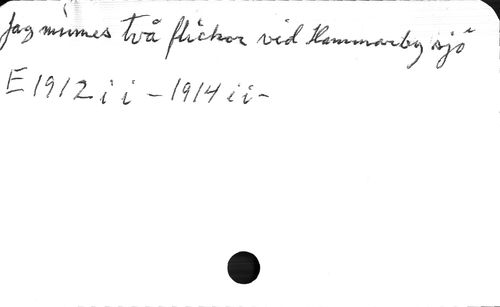 Jag minnes två flickor vid Hammarby sjö
E 1912 i i - 1914 i i -